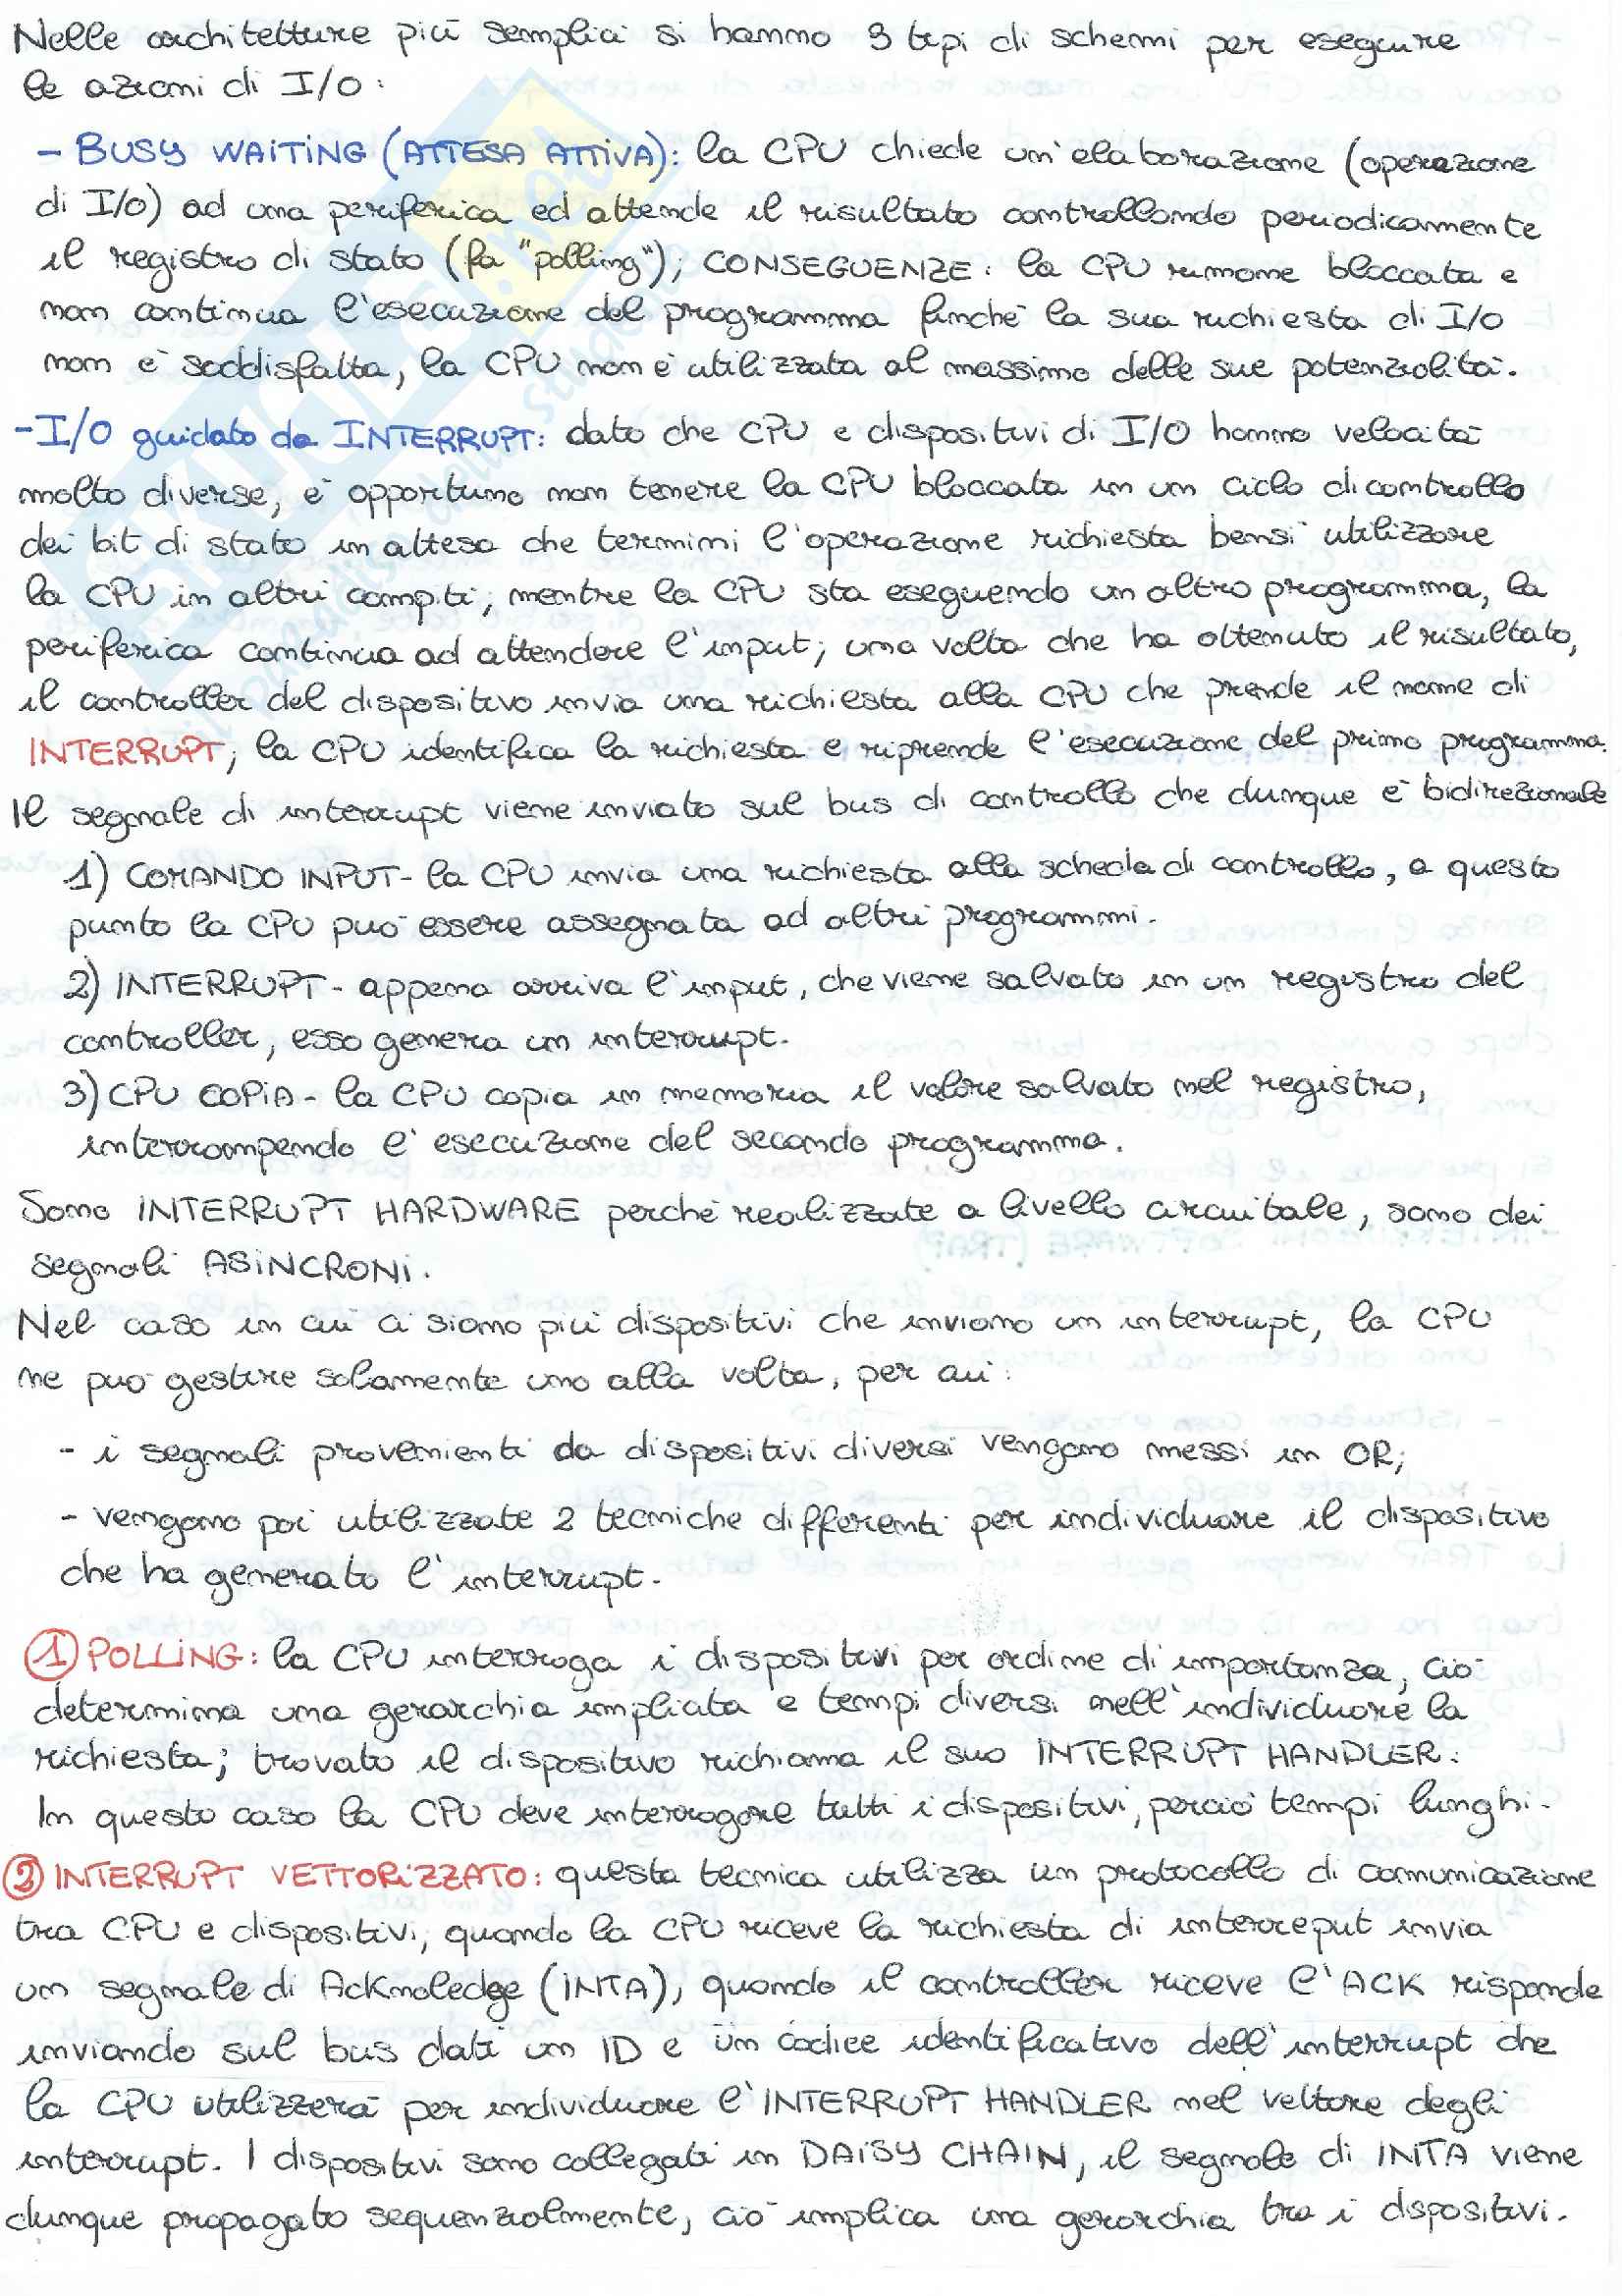 Nelle architetture più semplici si hanno 3 tipi di schemi per eseguire
le azioni di I/O:
- BUSY WAITING (ATTESA ATTIVA): la CPU chiede un'elaborazione (operazione
di I/O) ad una periferica ed attende il risultato controllando periodicamente
il registro di stato (fa "polling"); CONSEGUENZE: la CPU rimane bloccata e
non continua l'esecuzione del programma finché la sua richiesta di I/O
non è soddisfatta, la CPU non è utilizzata al massimo delle sue potenzialità.
- I/O guidato da INTERRUPT: dato che CPU e dispositivi di I/O hanno velocità
molto diverse, è opportuno non tenere la CPU bloccata in un ciclo di controllo
dei bit di stato in attesa che termini l'operazione richiesta bensì utilizzare
la CPU in altri compiti; mentre la CPU sta eseguendo un altro programma, la
periferica continua ad attendere l'input; una volta che ha ottenuto il risultato,
il controller del dispositivo invia una richiesta alla CPU che prende il nome di
INTERRUPT; la CPU identifica la richiesta e riprende l'esecuzione del primo programma.
Il segnale di interrupt viene inviato sul bus di controllo che dunque è bidirezionale
1) COMANDO INPUT - la CPU invia una richiesta alla scheda di controllo, a questo
punto la CPU può essere assegnata ad altri programmi.
2) INTERRUPT - appena arriva l'input, che viene salvato in un registro del
controller, esso genera un interrupt.
3) CPU COPIA - la CPU copia in memoria il valore salvato nel registro,
interrompendo l'esecuzione del secondo programma.
Sono INTERRUPT HARDWARE perché realizzate a livello circuitale, sono dei
segnali ASINCRONI.
Nel caso in cui ci siano più dispositivi che inviano un interrupt, la CPU
ne può gestire solamente uno alla volta, per cui:
- i segnali provenienti da dispositivi diversi vengono messi in OR;
- vengono poi utilizzate 2 tecniche differenti per individuare il dispositivo
che ha generato l'interrupt.
1 POLLING: la CPU interroga i dispositivi per ordine di importanza, ciò
determina una gerarchia implicita e tempi diversi nell'individuare la
richiesta; trovato il dispositivo richiama il suo INTERRUPT HANDLER.
In questo caso la CPU deve interrogare tutti i dispositivi, perciò tempi lunghi.
2 INTERRUPT VETTORIZZATO: questa tecnica utilizza un protocollo di comunicazione
tra CPU e dispositivi, quando la CPU riceve la richiesta di interreput invia
un segnale di Acknoledge (INTA), quando il controller riceve l'ACK risponde
inviando sul bus dati un ID e un codice identificativo dell'interrupt che
la CPU utilizzerà per individuare l'INTERRUPT HANDLER nel vettore degli
interrupt. I dispositivi sono collegati in DAISY CHAIN, il segnale di INTA viene
dunque propagato sequenzialmente, ciò implica una gerarchia tra i dispositivi.